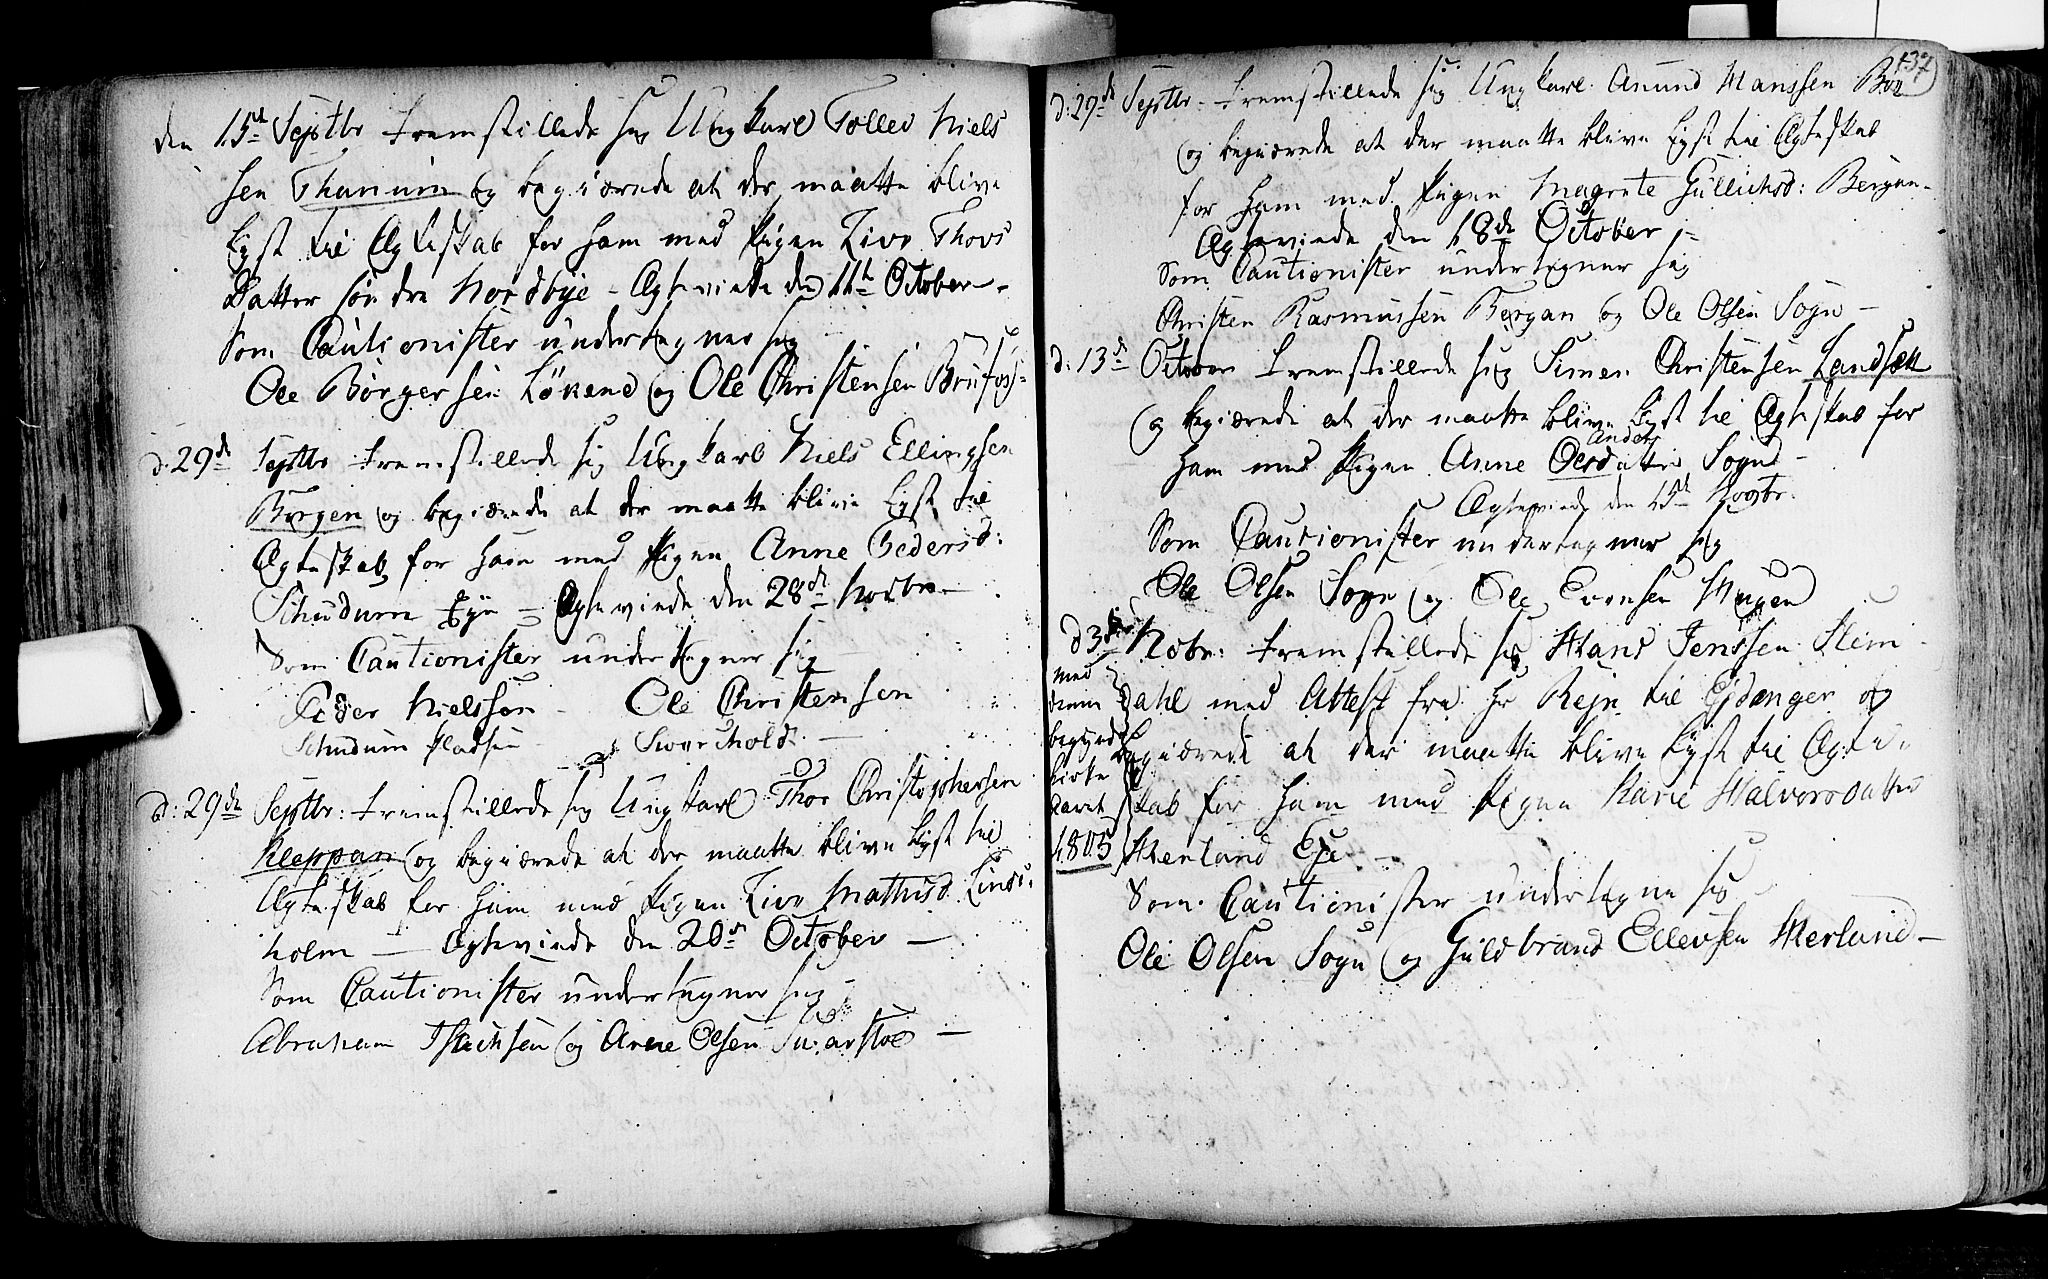 den 15de Septbr fremstillede sig Ungkarl Tollev Niels
sen Thanum og begiærede at der maatte blive
lyst til Ægteskab for ham med Pigen Live Thovs
Datter søndre Nordbye - Ægteviede den 11te October -
Som Cautionister undertegner sig
Ole Børgersen Løkene og Ole Christensen Brufoss
d: 29de Septbr fremstillede sig Ungkarl Niels Ellingsen
Bergen og begiærede at der maatte blive lyst til
Ægteskab for ham med Pigen Anne Pedersd:
Schudum Eye - Ægteviede den 28de Novbr -
Som Cautionister undertegner sig
Peder Nielssen - Ole Christensen
Schudum Pladsen Swarthold -
d: 29de Septbr: fremstillede sig Ungkarl Thor Christophersen
Kleppan og begiærede at der maatte blive lyst til
Ægteskab for ham med Pigen Live Mathisd. Linds
holm - Ægteviede den 20de October -
Som Cautionister undertegner sig -
Abraham Isachsen og Arne Olsen Suarstoe -
137
d: 29de Septbr - fremstillede sig Ungkarl Amund Hanssen Boe
og begiærede at der maatte blive lyst til Ægteskab
for ham med Pigen Magrete Gullichsd: Bergan -
Ægteviede den 18de October -
Som Cautionister undertegner sig
Christen Rasmussen Bergan og Ole Olsen Sogn -
d: 13de October fremstillede sig Simen Christensen Landsæt
og begiærede at der maatte blive lyst til Ægteskab for
Anders
ham med Pigen Anne Olesdatter Sogn -
Ægteviede den 15de Novbr.
Som Cautionister undertegner sig
Ole Olsen Sogn og Ole Evensen Haugen
d 3de Nobr: fremstillede sig Hans Jenssen Stein
dahl med Attest fra Hr Rejn til Ejdanger og
begiærede at der maatte blive lyst til Ægte
skab for ham med Pigen Karie Halvorsdatter
Herland Eje -
med
denne
begynder
kirke
aaret
1805
Som Cautionister undertegne sig
Ole Olsen Sogn og Guldbrand Ellevsen Herland -